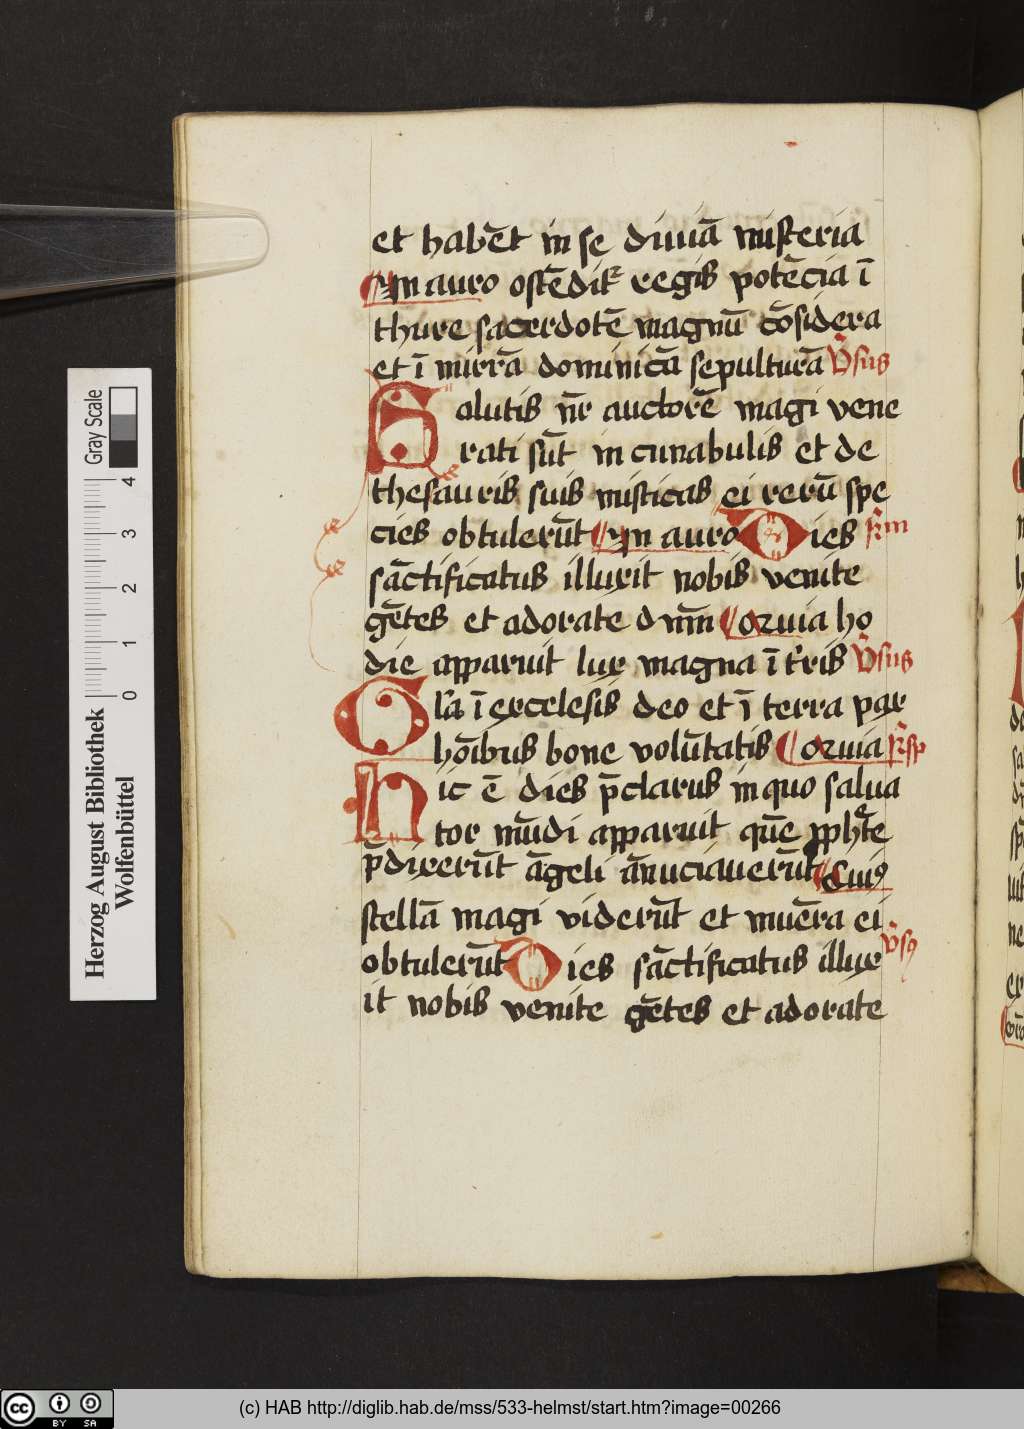 et habēt in se diuīā misteria
In auro ostēdit᷑ regis potēcia ī
thure sacerdotē magnū cōsidera
et ī mirrā dominicā sepulturā v̄sus
Salutis nr̄ auctorē magi vene
rati sūt in cunabulis et de
thesauris suis misticas ei rerū spe
cies obtulerūt In auro Dies
sāctificatus illuxit nobis venite
gētes et adorate dn̄m ho
die apparuit lux magna ī tr̄is v̄sus
Gl̄a ī excelsis deo et ī terra pax
hōibus bone volūtatis
Hic ē dies p̄clarus in quo salua
tor mūdi apparuit quē pphēte
p̄dixerūt āgeli ānuciauerūt Cuiꝰ
stellā magi viderūt et munēra ei
obtulerūt Dies sāctificatus illux v̄sꝰ
it nobis venite gētes et adorate
Gray Scale
0 1 2 3 4
Herzog August Bibliothek
Wolfenbüttel
cc BY SA
(c) HAB http://diglib.hab.de/mss/533-helmst/start.htm?image=00266